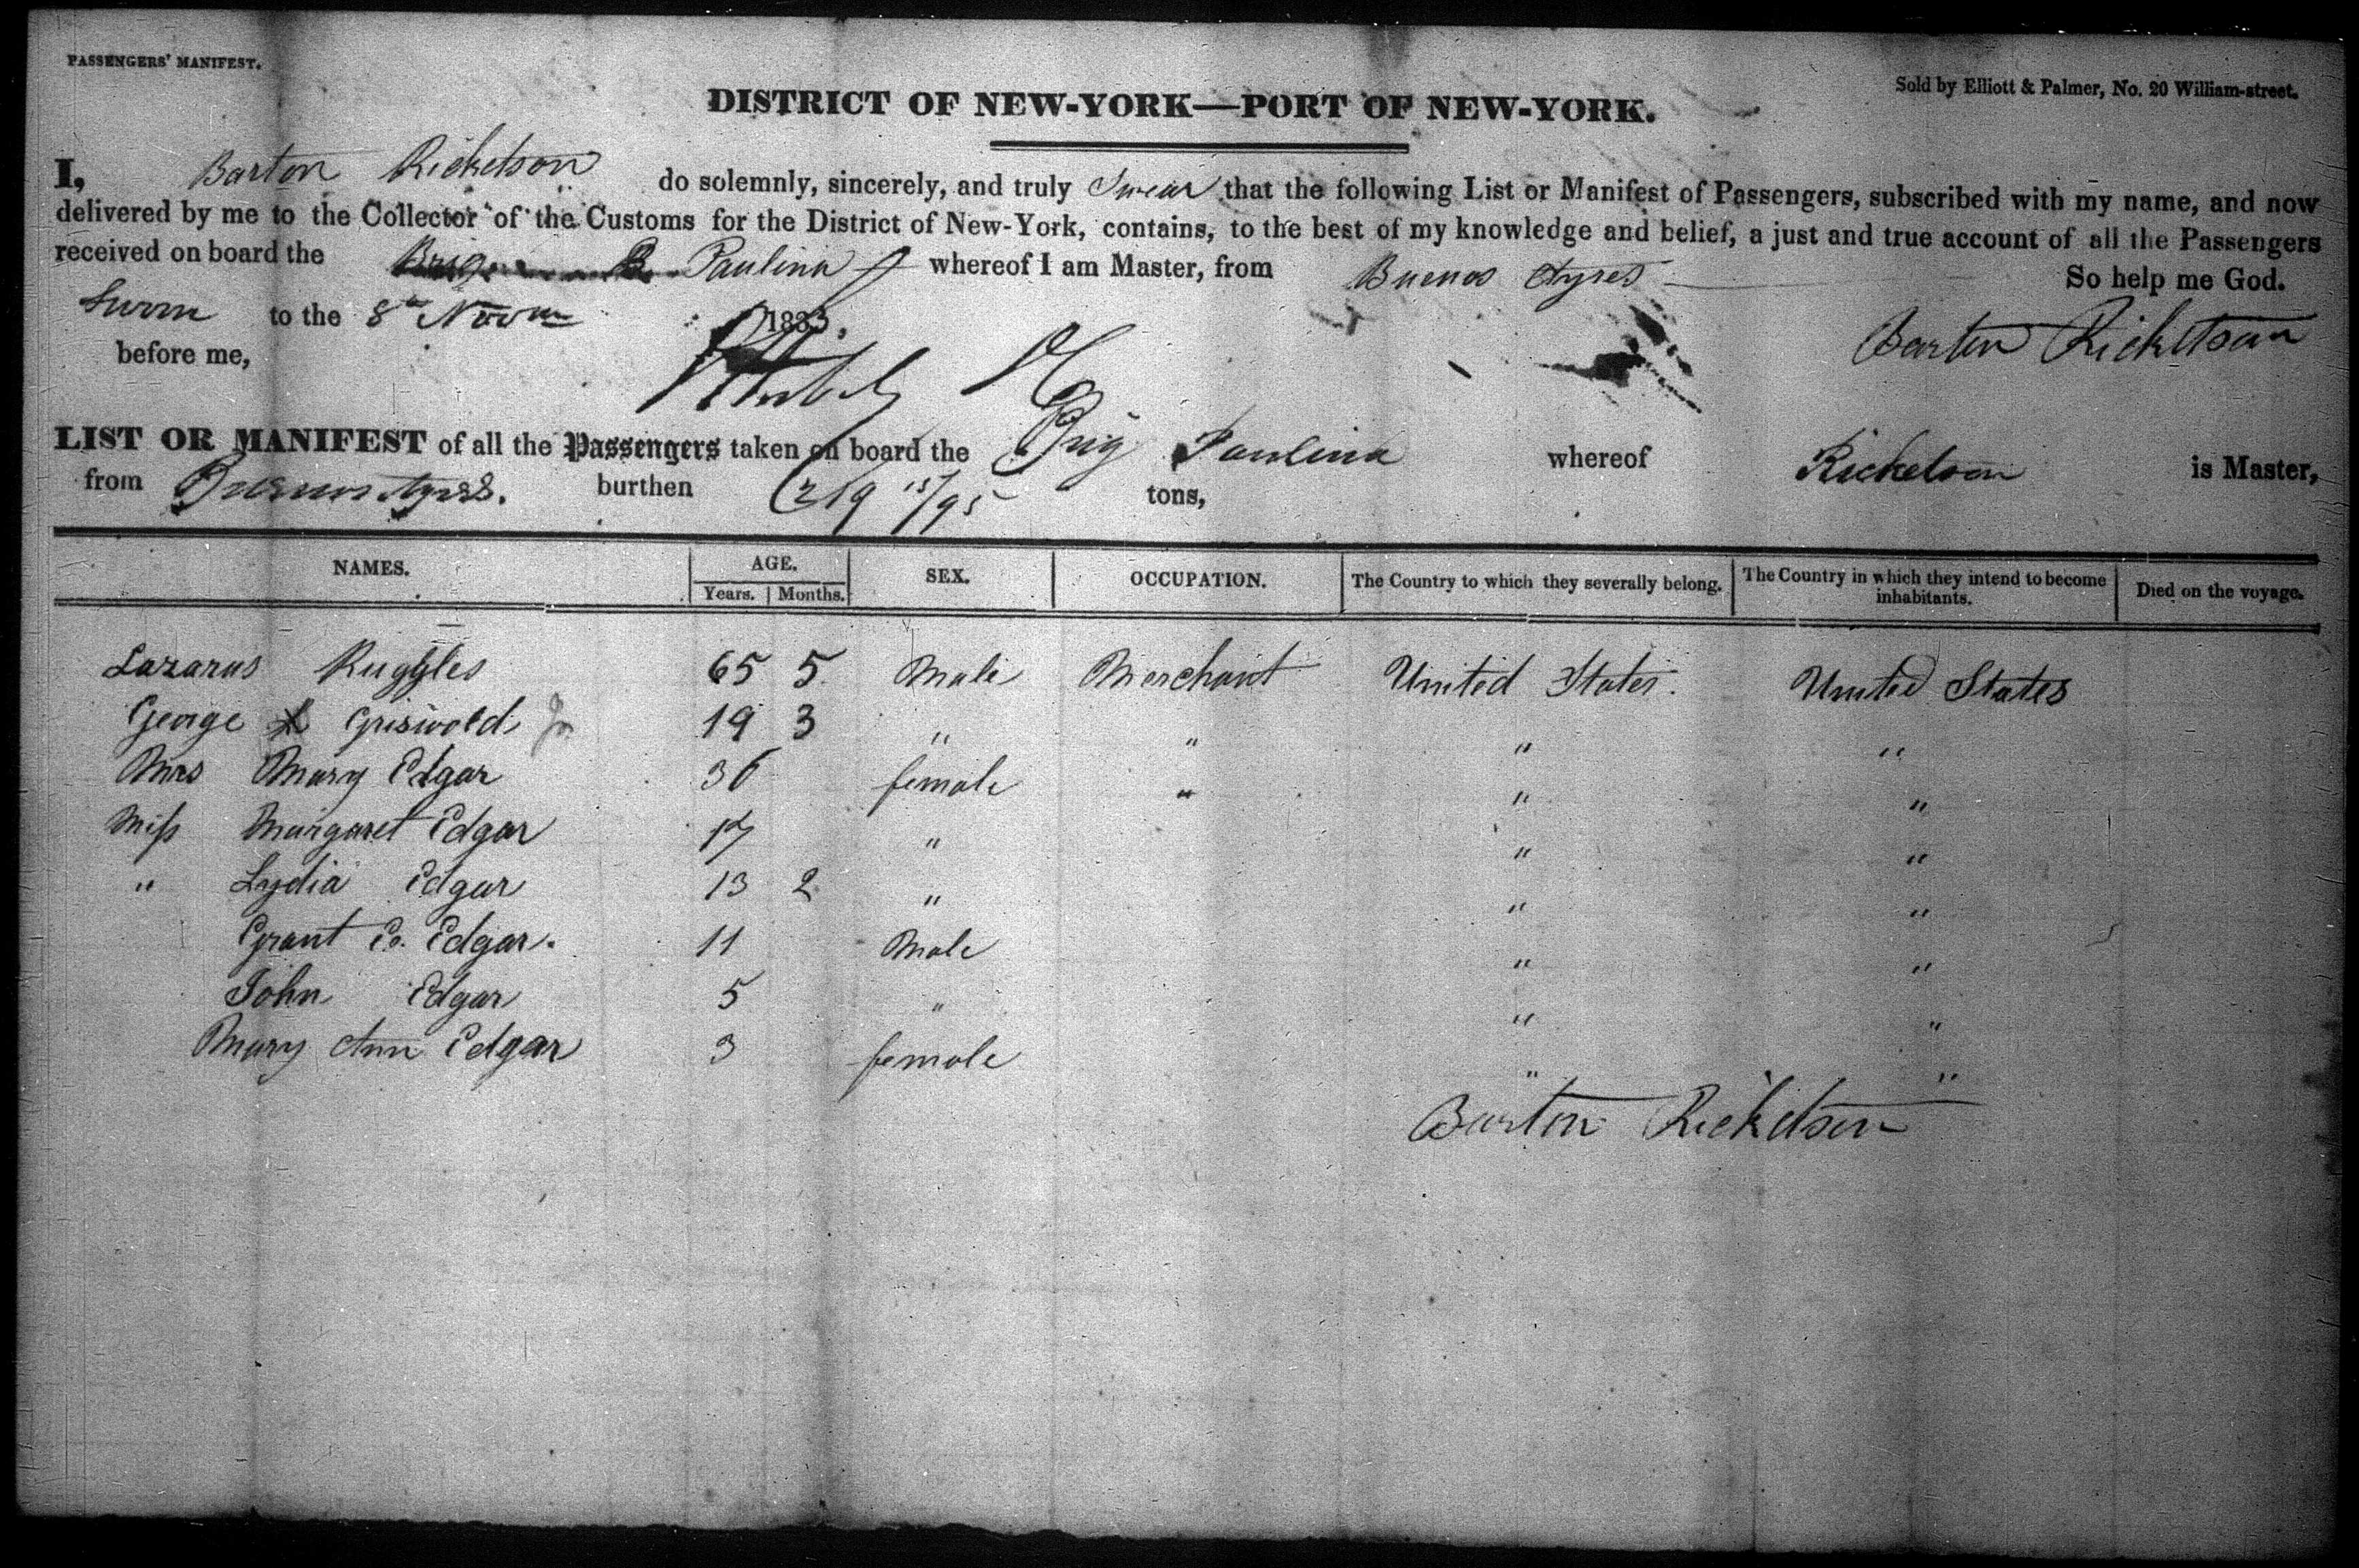 PASSENGERS' MANIFEST.
Sold by Elliott & Palmer, No. 20 William-street.
DISTRICT OF NEW-YORK—PORT OF NEW-YORK.
I, Barton Ricketson do solemnly, sincerely, and truly Swear that the following List or Manifest of Passengers, subscribed with my name, and now
delivered by me to the Collector of the Customs for the District of New-York, contains, to the best of my knowledge and belief, a just and true account of all the Passengers
received on board the Brig Paulina whereof I am Master, from Buenos Ayres So help me God.
Sworn to the 8th Novm 1833.
before me,
Barton Ricketson
LIST OR MANIFEST of all the Passengers taken on board the Brig Paulina whereof Ricketson is Master,
from Buenos Ayres. burthen 219 15/95 tons,
NAMES. AGE. SEX. OCCUPATION. The Country to which they severally belong. The Country in which they intend to become inhabitants. Died on the voyage.
Years. Months.
Lazarus Ruggles 65 5 Male Merchant United States. United States
George Griswold Jr 19 3 " " " "
Mrs Mary Edgar 36 female " " "
Miss Margaret Edgar 17 " " "
" Lydia Edgar 13 2 " " "
Grant Edgar. 11 Male " "
John Edgar 5 " " "
Mary Ann Edgar 3 female " "
Barton Ricketson